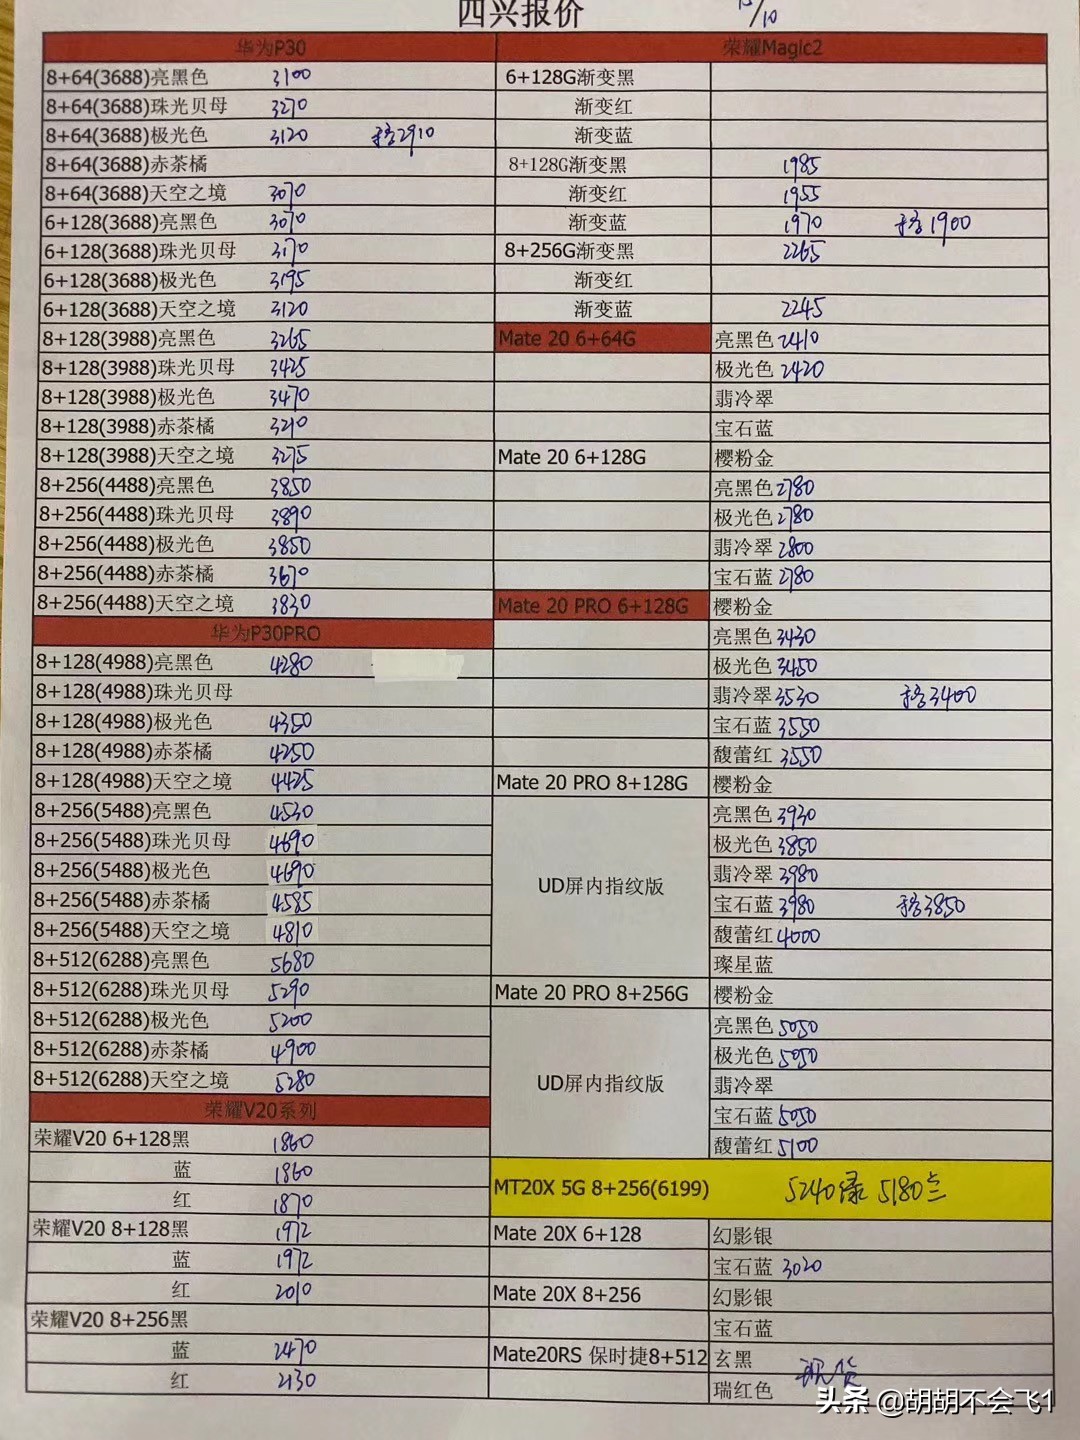 四兴报价 15/10
华为P30
8+64(3688)亮黑色 3100
8+64(3688)珠光贝母 3270
8+64(3688)极光色 3120 移2910
8+64(3688)赤茶橘
8+64(3688)天空之境 3070
6+128(3688)亮黑色 3070
6+128(3688)珠光贝母 3170
6+128(3688)极光色 3195
6+128(3688)天空之境 3120
8+128(3988)亮黑色 3265
8+128(3988)珠光贝母 3425
8+128(3988)极光色 3470
8+128(3988)赤茶橘 3210
8+128(3988)天空之境 3275
8+256(4488)亮黑色 3850
8+256(4488)珠光贝母 3890
8+256(4488)极光色 3850
8+256(4488)赤茶橘 3670
8+256(4488)天空之境 3830
华为P30PRO
8+128(4988)亮黑色 4280
8+128(4988)珠光贝母
8+128(4988)极光色 4350
8+128(4988)赤茶橘 4250
8+128(4988)天空之境 4425
8+256(5488)亮黑色 4530
8+256(5488)珠光贝母 4690
8+256(5488)极光色 4690
8+256(5488)赤茶橘 4585
8+256(5488)天空之境 4810
8+512(6288)亮黑色 5680
8+512(6288)珠光贝母 5290
8+512(6288)极光色 5200
8+512(6288)赤茶橘 4900
8+512(6288)天空之境 5280
荣耀V20系列
荣耀V20 6+128黑 1860
蓝 1860
红 1870
荣耀V20 8+128黑 1972
蓝 1972
红 2010
荣耀V20 8+256黑
蓝 2470
红 2130
荣耀Magic2
6+128G渐变黑
渐变红
渐变蓝
8+128G渐变黑 1985
渐变红 1955
渐变蓝 1970 移1900
8+256G渐变黑 2265
渐变红
渐变蓝 2245
Mate 20 6+64G 亮黑色 2410
极光色 2420
翡冷翠
宝石蓝
Mate 20 6+128G 樱粉金
亮黑色 2780
极光色 2780
翡冷翠 2800
宝石蓝 2780
Mate 20 PRO 6+128G 樱粉金
亮黑色 3430
极光色 3450
翡冷翠 3530 移3400
宝石蓝 3550
馥蕾红 3550
Mate 20 PRO 8+128G 樱粉金
UD屏内指纹版
亮黑色 3930
极光色 3850
翡冷翠 3980
宝石蓝 3980 移3850
馥蕾红 4000
璨星蓝
Mate 20 PRO 8+256G 樱粉金
UD屏内指纹版
亮黑色 5050
极光色 5050
翡冷翠
宝石蓝 5050
馥蕾红 5100
MT20X 5G 8+256(6199) 5240绿 5180
Mate 20X 6+128 幻影银
宝石蓝 3020
Mate 20X 8+256 幻影银
宝石蓝
Mate20RS 保时捷8+512 玄黑 现货
瑞红色
头条 @胡胡不会飞1